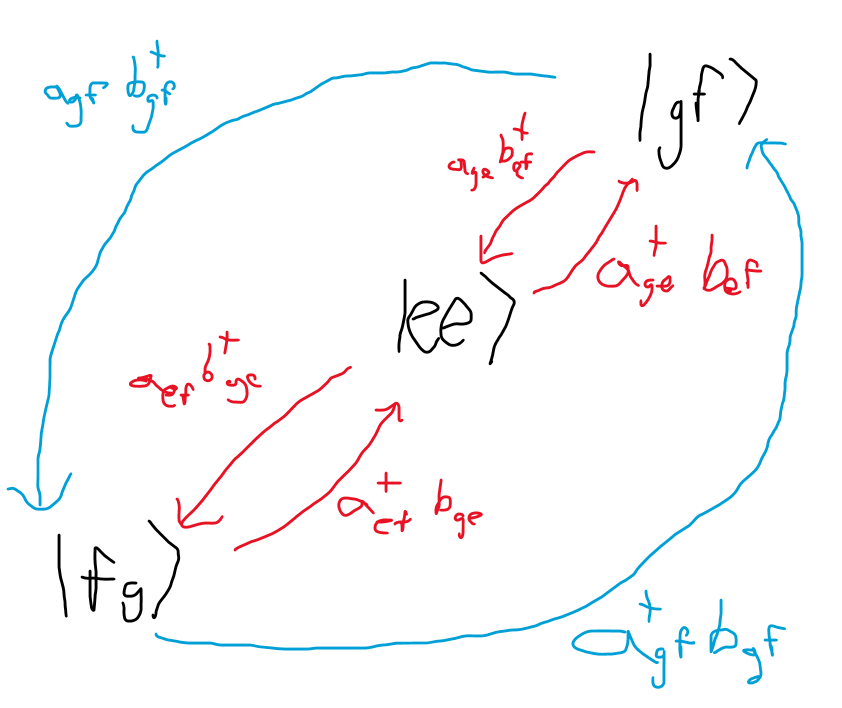 a_gf b_gf^†
|gf⟩
a_ge b_ef^†
a_ge^† b_ef
|ee⟩
a_ef b_ge^†
a_ef^† b_ge
|fg⟩
a_gf^† b_gf